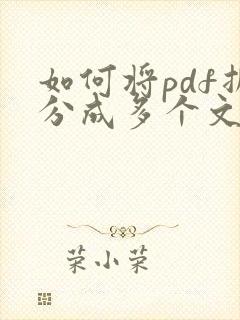 如何将pdf拆
分成多个文
荣小荣